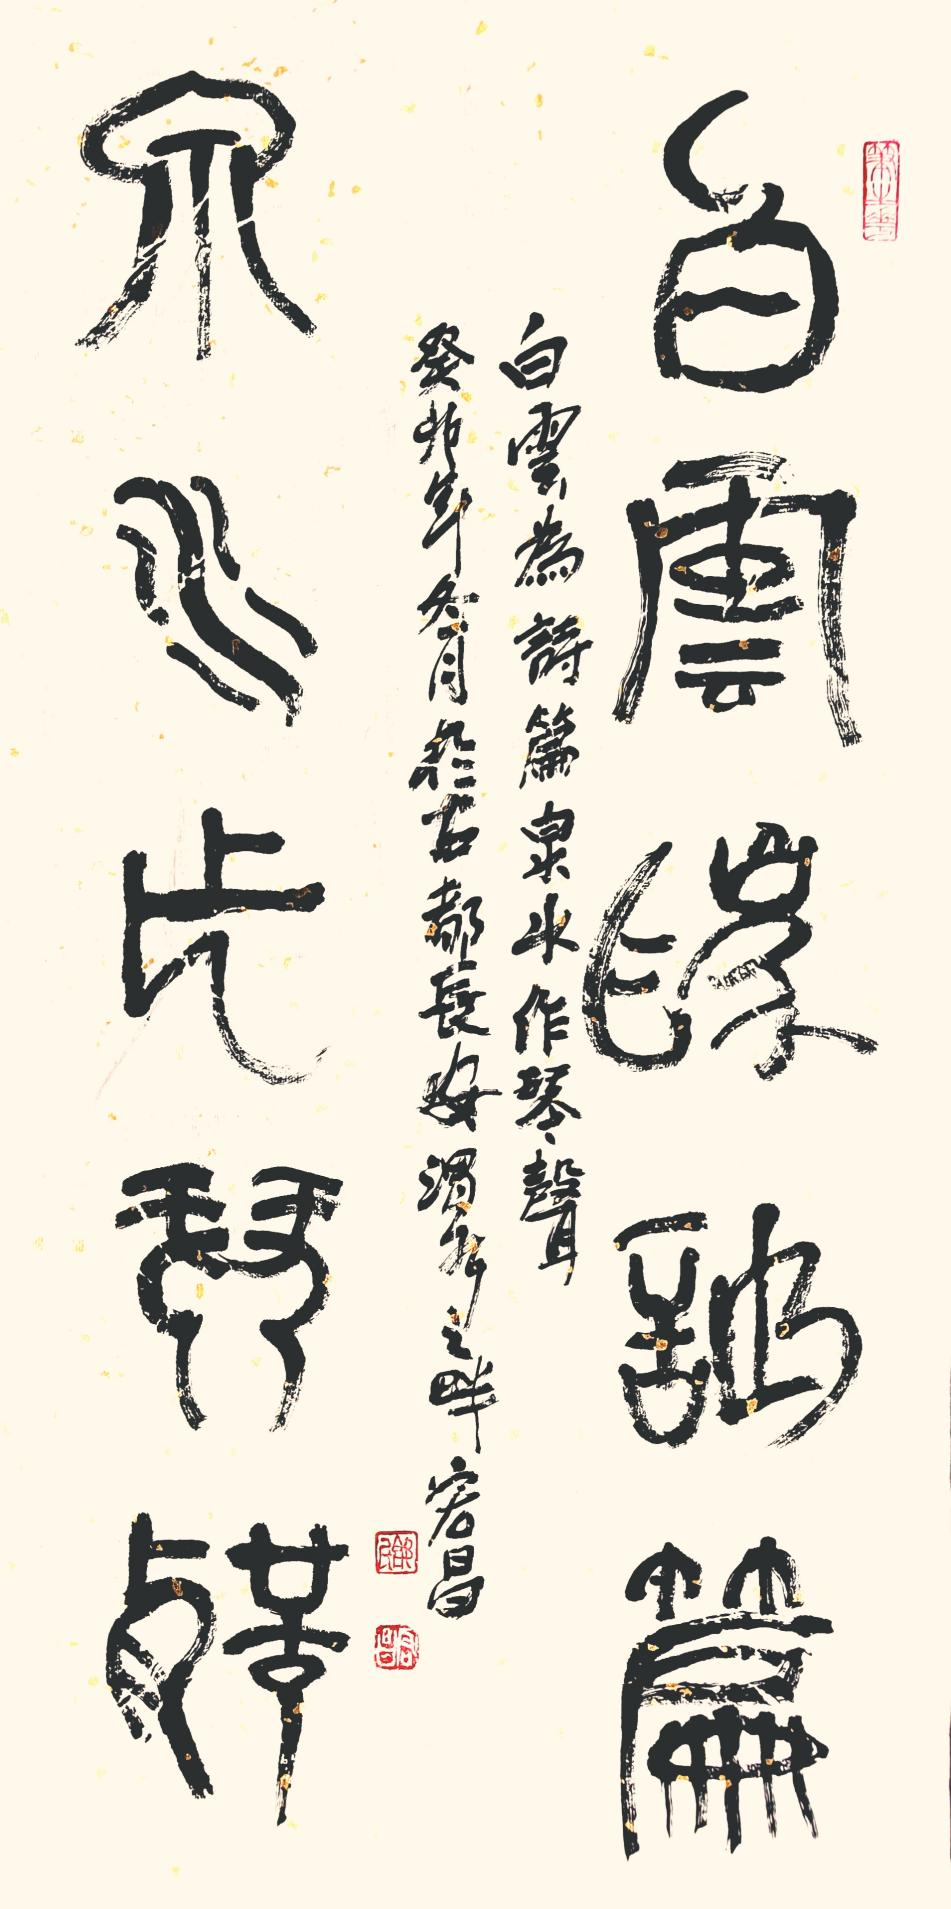 白雲為詩篇
白雲為詩篇泉水作琴聲
癸卯年冬月於古都長安渭水之畔宏昌
泉水作琴聲